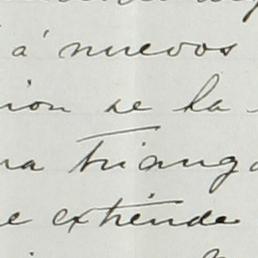 á nuevos
ion se la
na triang
e extiende